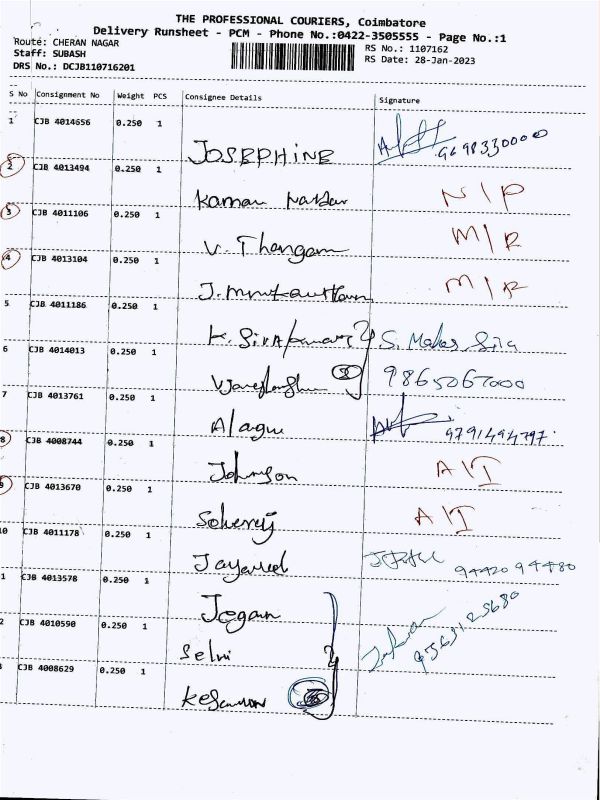 THE PROFESSIONAL COURIERS, Coimbatore
Delivery Runsheet - PCM - Phone No.:0422-3505555 - Page No.:1
Route: CHERAN NAGAR RS No.: 1107162
Staff: SUBASH RS Date: 28-Jan-2023
DRS No.: DCJB110716201
S No Consignment No Weight PCS Consignee Details Signature
1 CJB 4014656 0.250 1 JOSEPHINE
2 CJB 4013494 0.250 1 N/P
3 CJB 4011106 0.250 1 V. Thangam M/R
4 CJB 4013104 0.250 1 M/R
5 CJB 4011186 0.250 1 K. Sivakumar
6 CJB 4014013 0.250 1
7 CJB 4013761 0.250 1 Alagu
8 CJB 4008744 0.250 1 Johnson A/I
9 CJB 4013670 0.250 1 A/I
0 CJB 4011178 0.250 1 94420 94480
1 CJB 4013578 0.250 1 Jegan
2 CJB 4010590 0.250 1 Selvi
CJB 4008629 0.250 1